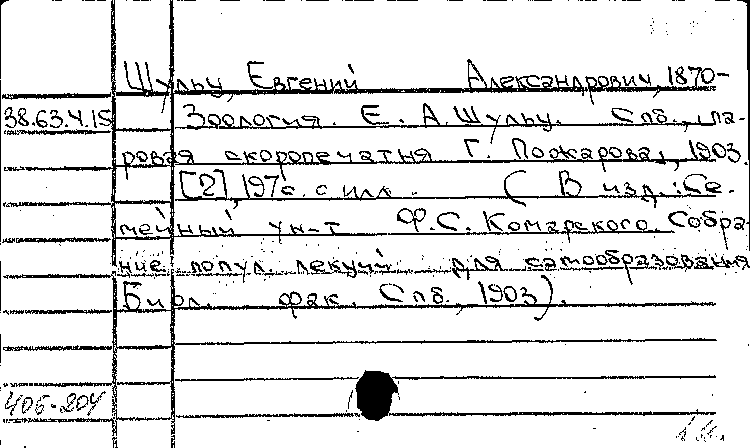 Шульц, Евгений Александрович, 1870-
38.63.4.15 Зоология. Е. А. Шульц. Спб., па-
ровая скоропечатня Г. Пожарова, 1903.
[2], 197с. с илл. ( В изд.: Се-
мейный ун-т Ф.С. Комарского. Собра-
ние попул. лекций для самообразования
Биол. фак. Спб., 1903).
406-204